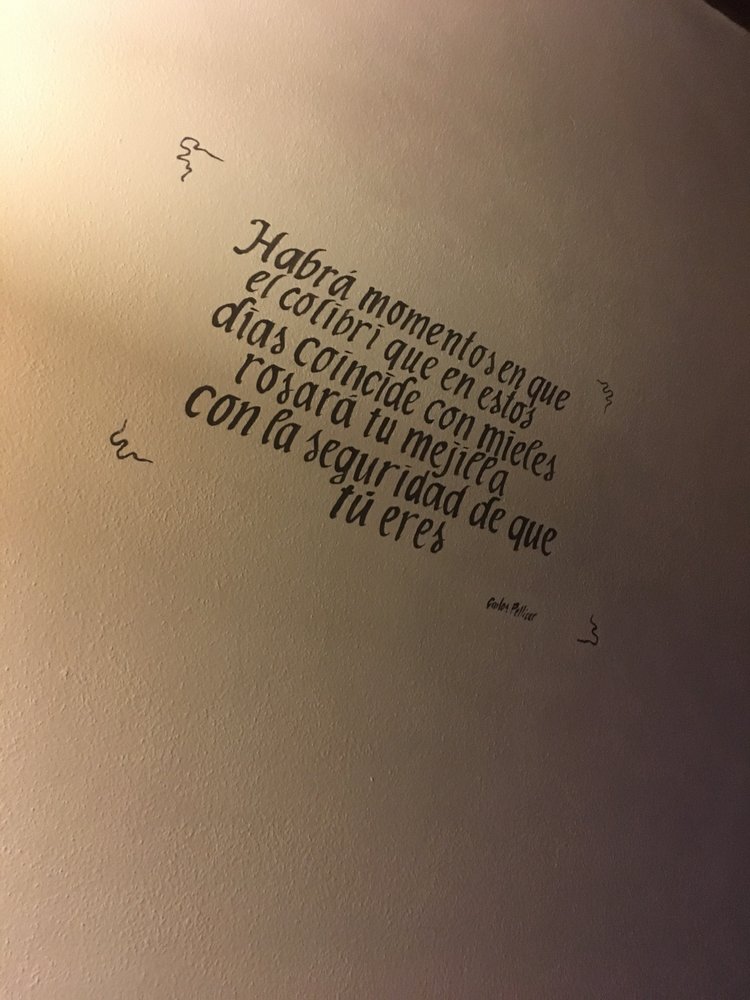 Habrá momentos en que
el colibri que en estos
días coincide con mieles
rosará tu mejilla
con la seguridad de que
tú eres
Carlos Pellicer